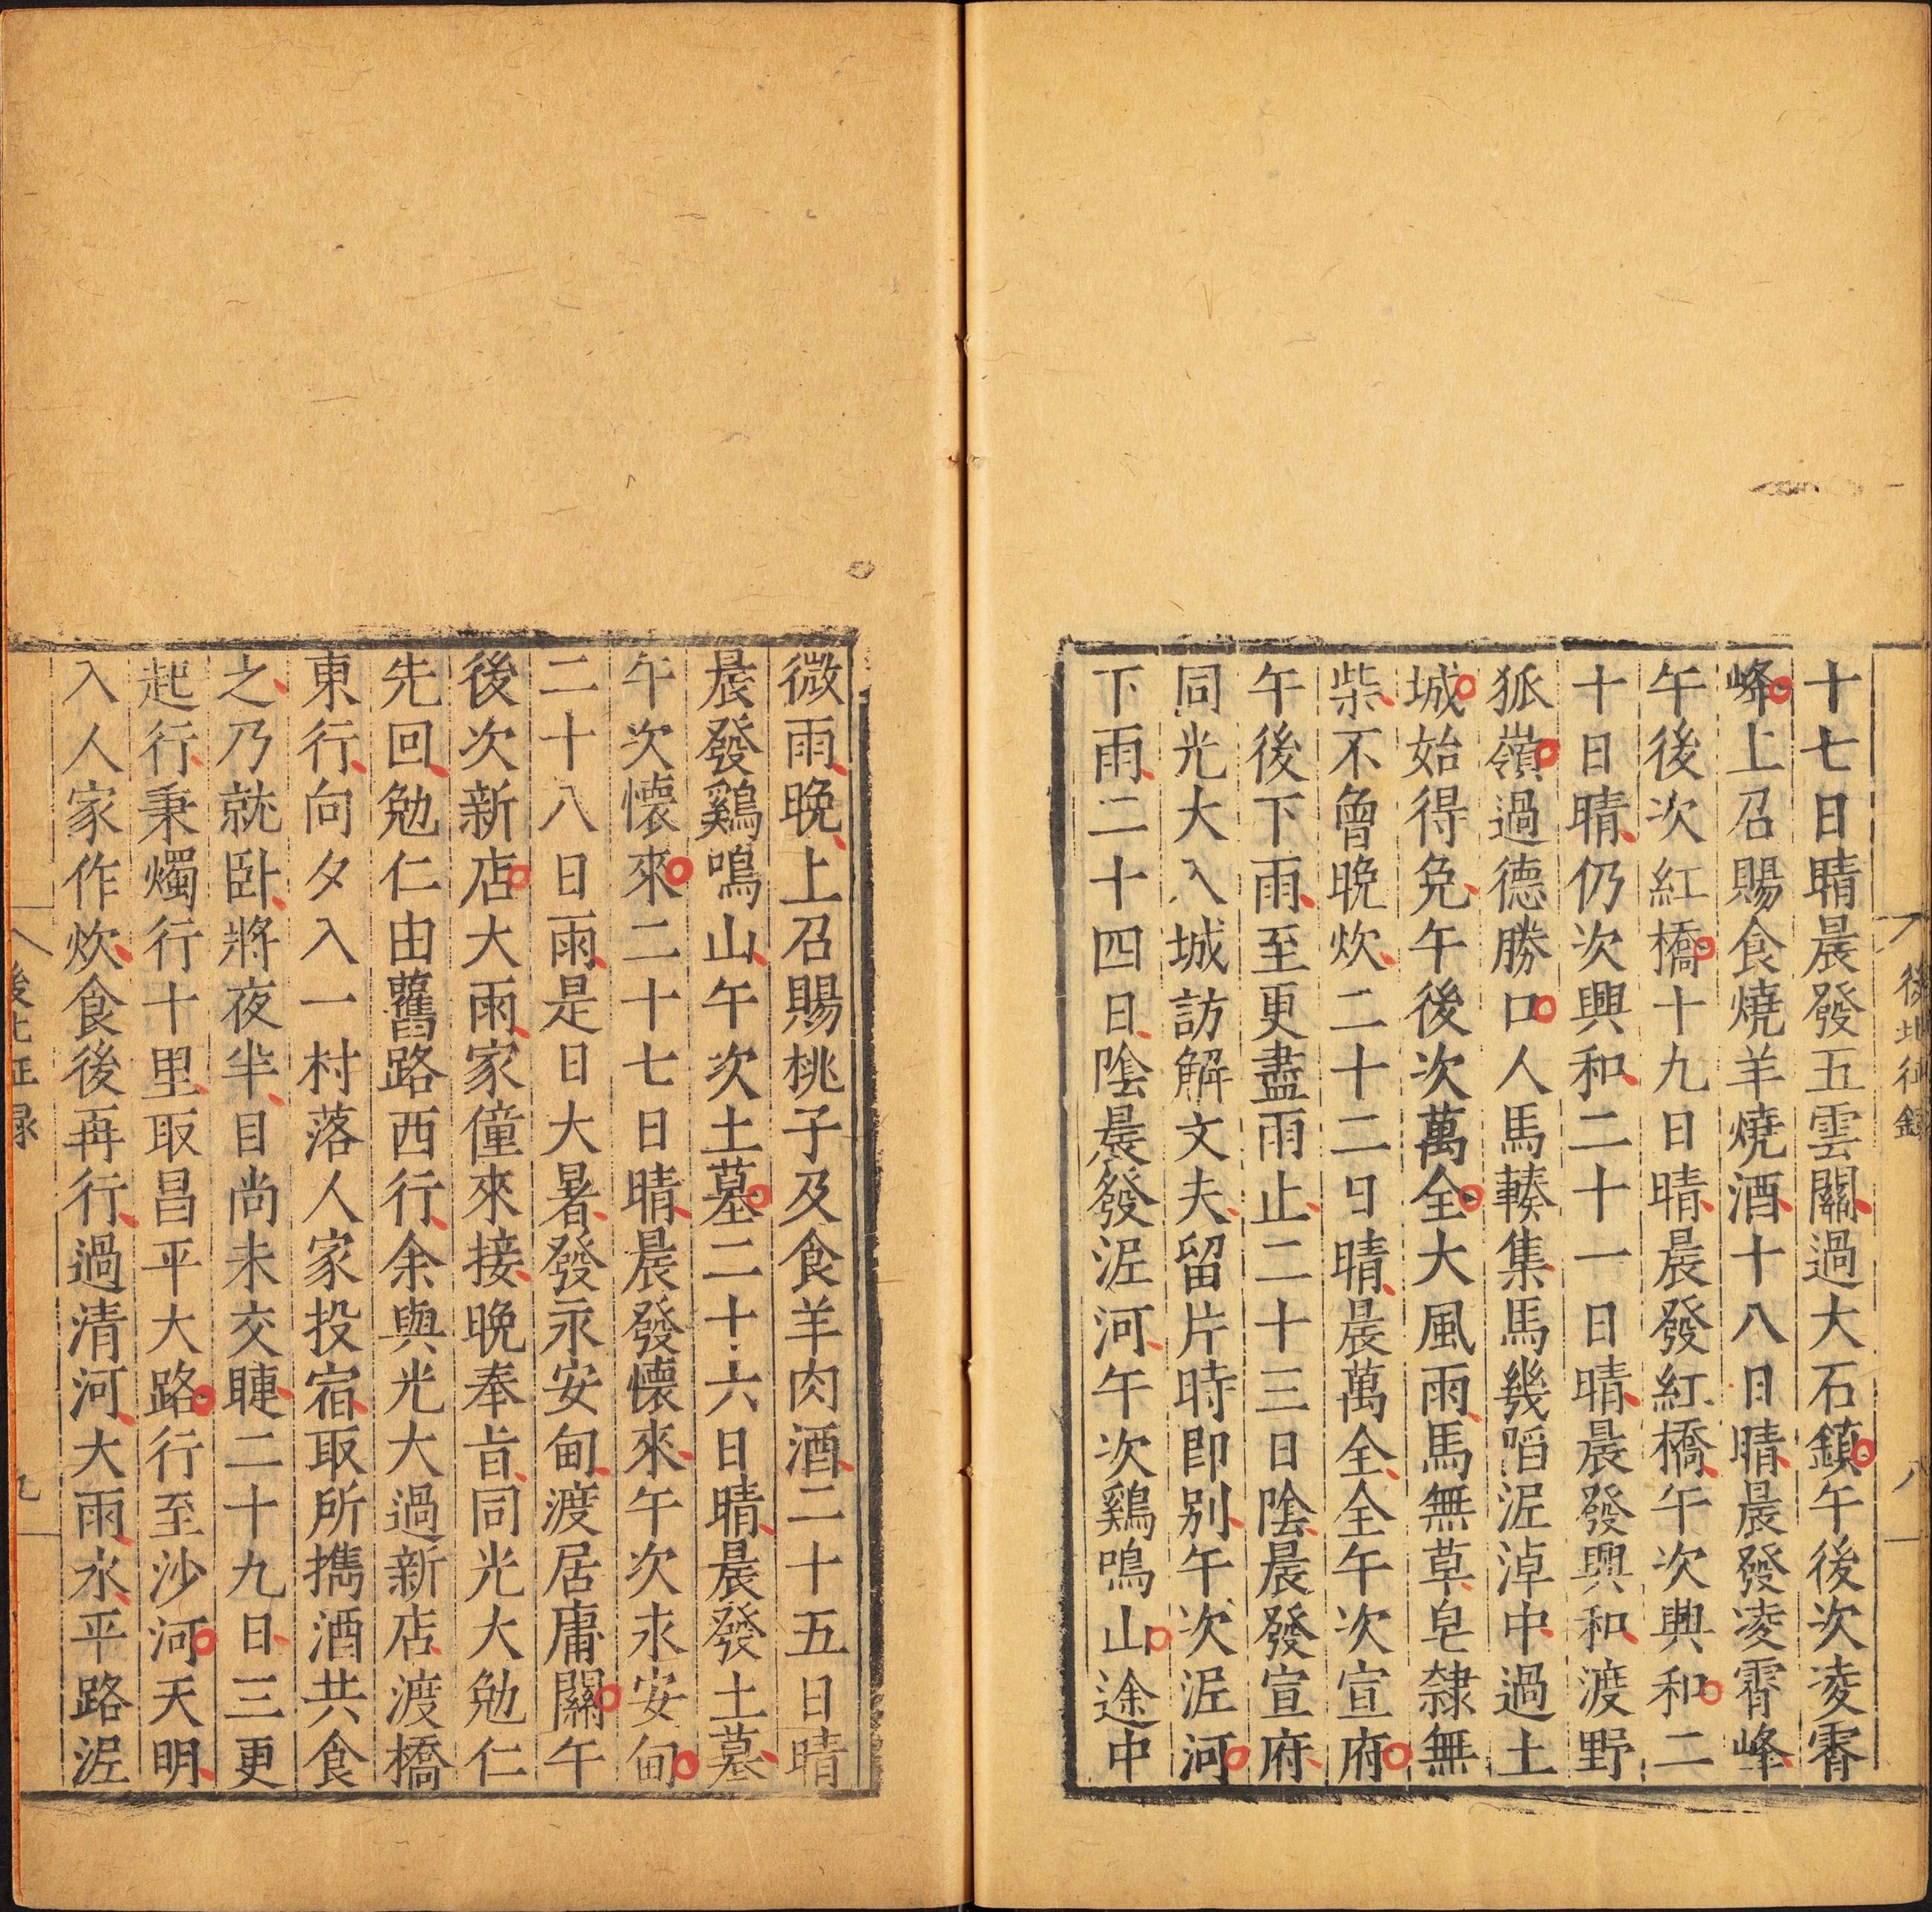 後北征錄
八
十七日晴晨發五雲關過大石鎮午後次凌霄
峰上召賜食燒羊燒酒十八日晴晨發凌霄峰
午後次紅橋十九日晴晨發紅橋午次興和二
十日晴仍次興和二十一日晴晨發興和渡野
狐嶺過德勝口人馬輳集馬幾䧟泥淖中過土
城始得免午後次萬全大風雨馬無草皂隸無
柴不曾晚炊二十二日晴晨萬全全午次宣府
午後下雨至更盡雨止二十三日陰晨發宣府
同光大入城訪解文夫留片時即别午次泥河
下雨二十四日陰晨發泥河午次鷄鳴山途中
微雨晚上召賜桃子及食羊肉酒二十五日晴
晨發鷄鳴山午次土墓二十六日晴晨發土墓
午次懷來二十七日晴晨發懷來午次永安甸
二十八日雨是日大暑發永安甸渡居庸關午
後次新店大雨家僮來接晚奉旨同光大勉仁
先回勉仁由舊路西行余與光大過新店渡橋
東行向夕入一村落人家投宿取所攜酒共食
之乃就卧將夜半目尚未交睫二十九日三更
起行秉燭行十里取昌平大路行至沙河天明
入人家作炊食後再行過清河大雨水平路泥
後北征录
九